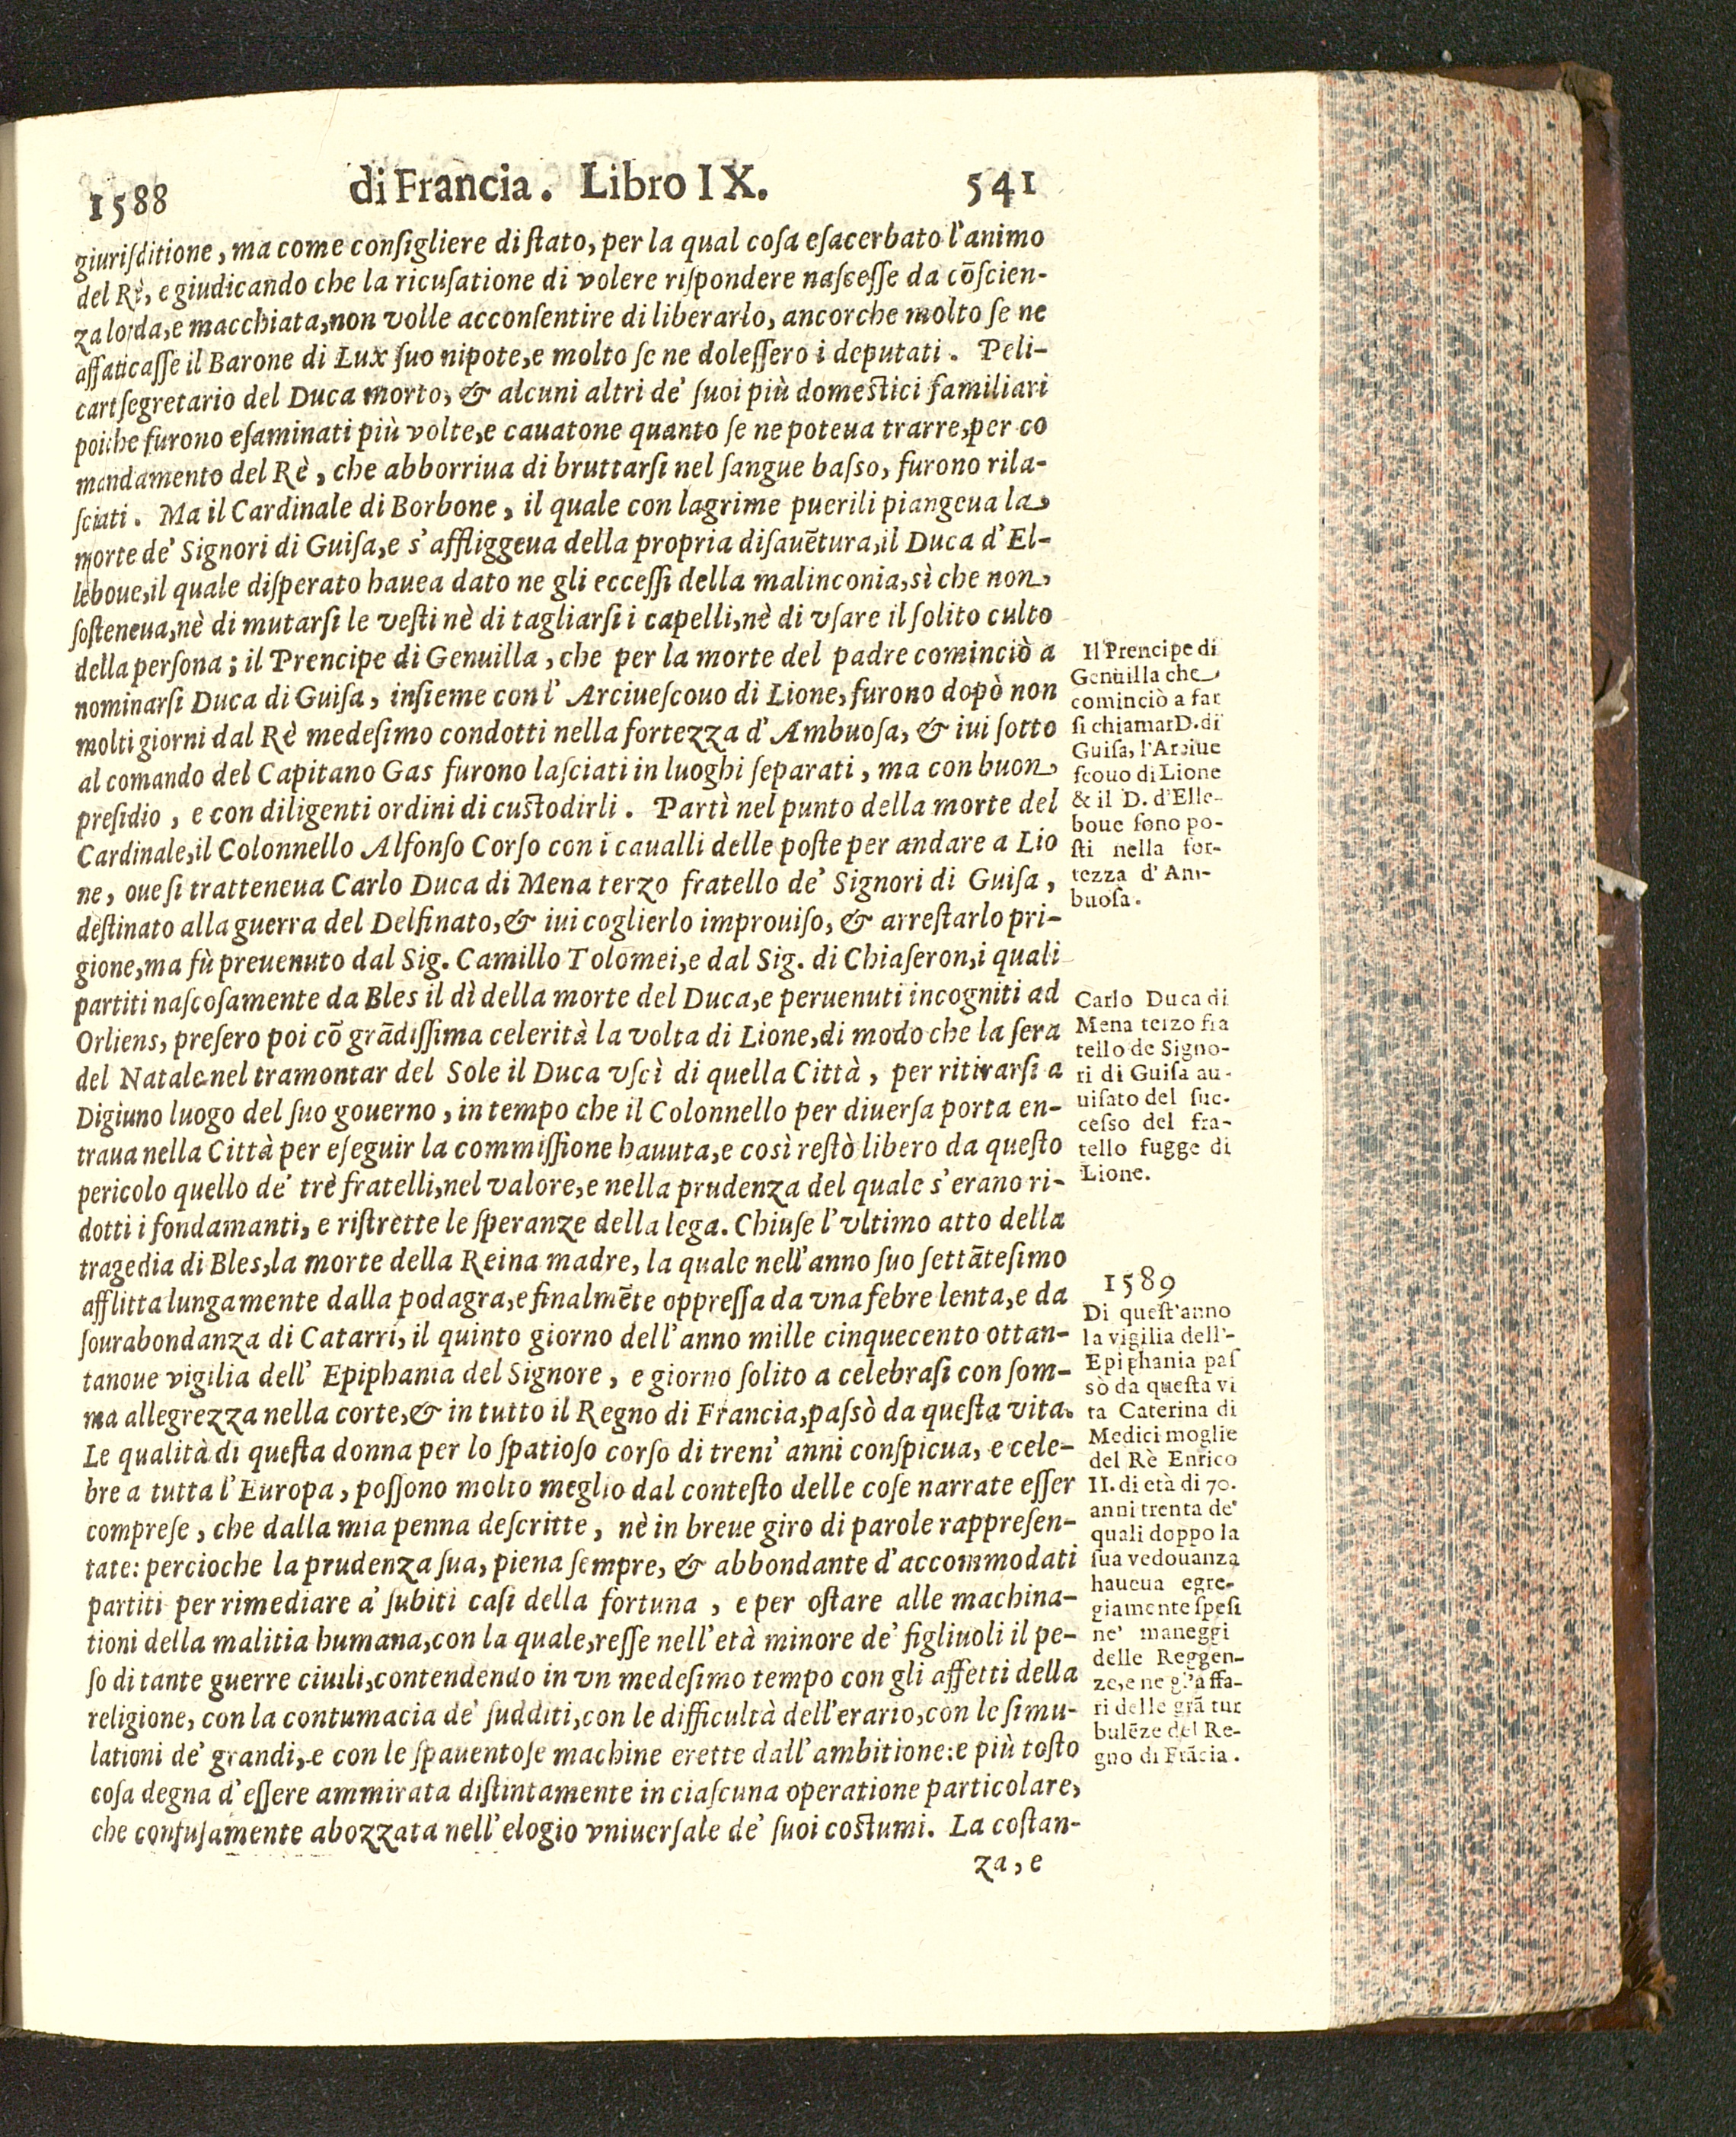 1588 di Francia. Libro IX. 541
giuriſditione, ma come conſigliere di ſtato, per la qual coſa eſacerbato l'animo
del Rè, e giudicando che la ricuſatione di volere riſpondere naſceſſe da cõſcien-
za lorda, e macchiata, non volle acconſentire di liberarlo, ancorche molto ſe ne
affaticaſſe il Barone di Lux ſuo nipote, e molto ſe ne doleſſero i deputati. Peli-
cart ſegretario del Duca morto, & alcuni altri de' ſuoi più domeſtici familiari
poiche furono eſaminati più volte, e cauatone quanto ſe ne poteua trarre, per co
mandamento del Rè, che abborriua di bruttarſi nel ſangue baſſo, furono rila-
ſciati. Ma il Cardinale di Borbone, il quale con lagrime puerili piangeua la
morte de' Signori di Guiſa, e s'affliggeua della propria diſauẽtura, il Duca d'El-
leboue, il quale diſperato hauea dato ne gli ecceſſi della malinconia, sì che non
ſoſteneua, nè di mutarſi le veſti nè di tagliarſi i capelli, nè di vſare il ſolito culto
della perſona; il Prencipe di Genuilla, che per la morte del padre cominciò a
nominarſi Duca di Guiſa, inſieme con l' Arciueſcouo di Lione, furono dopò non
molti giorni dal Rè medeſimo condotti nella fortezza d' Ambuoſa, & iui ſotto
al comando del Capitano Gas furono laſciati in luoghi ſeparati, ma con buon
preſidio, e con diligenti ordini di cuſtodirli. Partì nel punto della morte del
Cardinale, il Colonnello Alfonſo Corſo con i caualli delle poſte per andare a Lio
ne, oue ſi tratteneua Carlo Duca di Mena terzo fratello de' Signori di Guiſa,
deſtinato alla guerra del Delfinato, & iui coglierlo improuiſo, & arreſtarlo pri-
gione, ma fù preuenuto dal Sig. Camillo Tolomei, e dal Sig. di Chiaſeron, i quali
partiti naſcoſamente da Bles il dì della morte del Duca, e peruenuti incogniti ad
Orliens, preſero poi cõ grãdiſſima celerità la volta di Lione, di modo che la ſera
del Natale nel tramontar del Sole il Duca vſcì di quella Città, per ritirarſi a
Digiuno luogo del ſuo gouerno, in tempo che il Colonnello per diuerſa porta en-
traua nella Città per eſeguir la commiſſione hauuta, e così reſtò libero da queſto
pericolo quello de' trè fratelli, nel valore, e nella prudenza del quale s'erano ri-
dotti i fondamanti, e riſtrette le ſperanze della lega. Chiuſe l'vltimo atto della
tragedia di Bles, la morte della Reina madre, la quale nell'anno ſuo ſettãteſimo
afflitta lungamente dalla podagra, e finalmẽte oppreſſa da vna febre lenta, e da
ſourabondanza di Catarri, il quinto giorno dell'anno mille cinquecento ottan-
tanoue vigilia dell' Epiphania del Signore, e giorno ſolito a celebraſi con ſom-
ma allegrezza nella corte, & in tutto il Regno di Francia, paſsò da queſta vita.
Le qualità di queſta donna per lo ſpatioſo corſo di trent' anni conſpicua, e cele-
bre a tutta l'Europa, poſſono molto meglio dal conteſto delle coſe narrate eſſer
compreſe, che dalla mia penna deſcritte, nè in breue giro di parole rappreſen-
tate: percioche la prudenza ſua, piena ſempre, & abbondante d'accommodati
partiti per rimediare a' ſubiti caſi della fortuna, e per oſtare alle machina-
tioni della malitia humana, con la quale, reſſe nell'età minore de' figliuoli il pe-
ſo di tante guerre ciuili, contendendo in vn medeſimo tempo con gli affetti della
religione, con la contumacia de' ſudditi, con le difficultà dell'erario, con le ſimu-
lationi de' grandi, e con le ſpauentoſe machine erette dall'ambitione: e più toſto
coſa degna d'eſſere ammirata diſtintamente in ciaſcuna operatione particolare,
che confuſamente abozzata nell'elogio vniuerſale de' ſuoi coſtumi. La coſtan-
za, e
Il Prencipe di
Genuilla che
cominciò a far
ſi chiamar D. di
Guiſa, l'Arciue
ſcouo di Lione
& il D. d'Elle-
boue ſono po-
ſti nella for-
tezza d' Am-
buoſa.
Carlo Duca di
Mena terzo fra
tello de Signo-
ri di Guiſa au-
uiſato del ſuc-
ceſſo del fra-
tello fugge di
Lione.
1589
Di queſt'anno
la vigilia dell'-
Epiphania paſ
sò da queſta vi
ta Caterina di
Medici moglie
del Rè Enrico
II. di età di 70.
anni trenta de'
quali doppo la
ſua vedouanza
haueua egre-
giamente ſpeſi
ne' maneggi
delle Reggen-
ze, e ne gl'affa-
ri delle grã tur
bulẽze del Re-
gno di Frãcia.